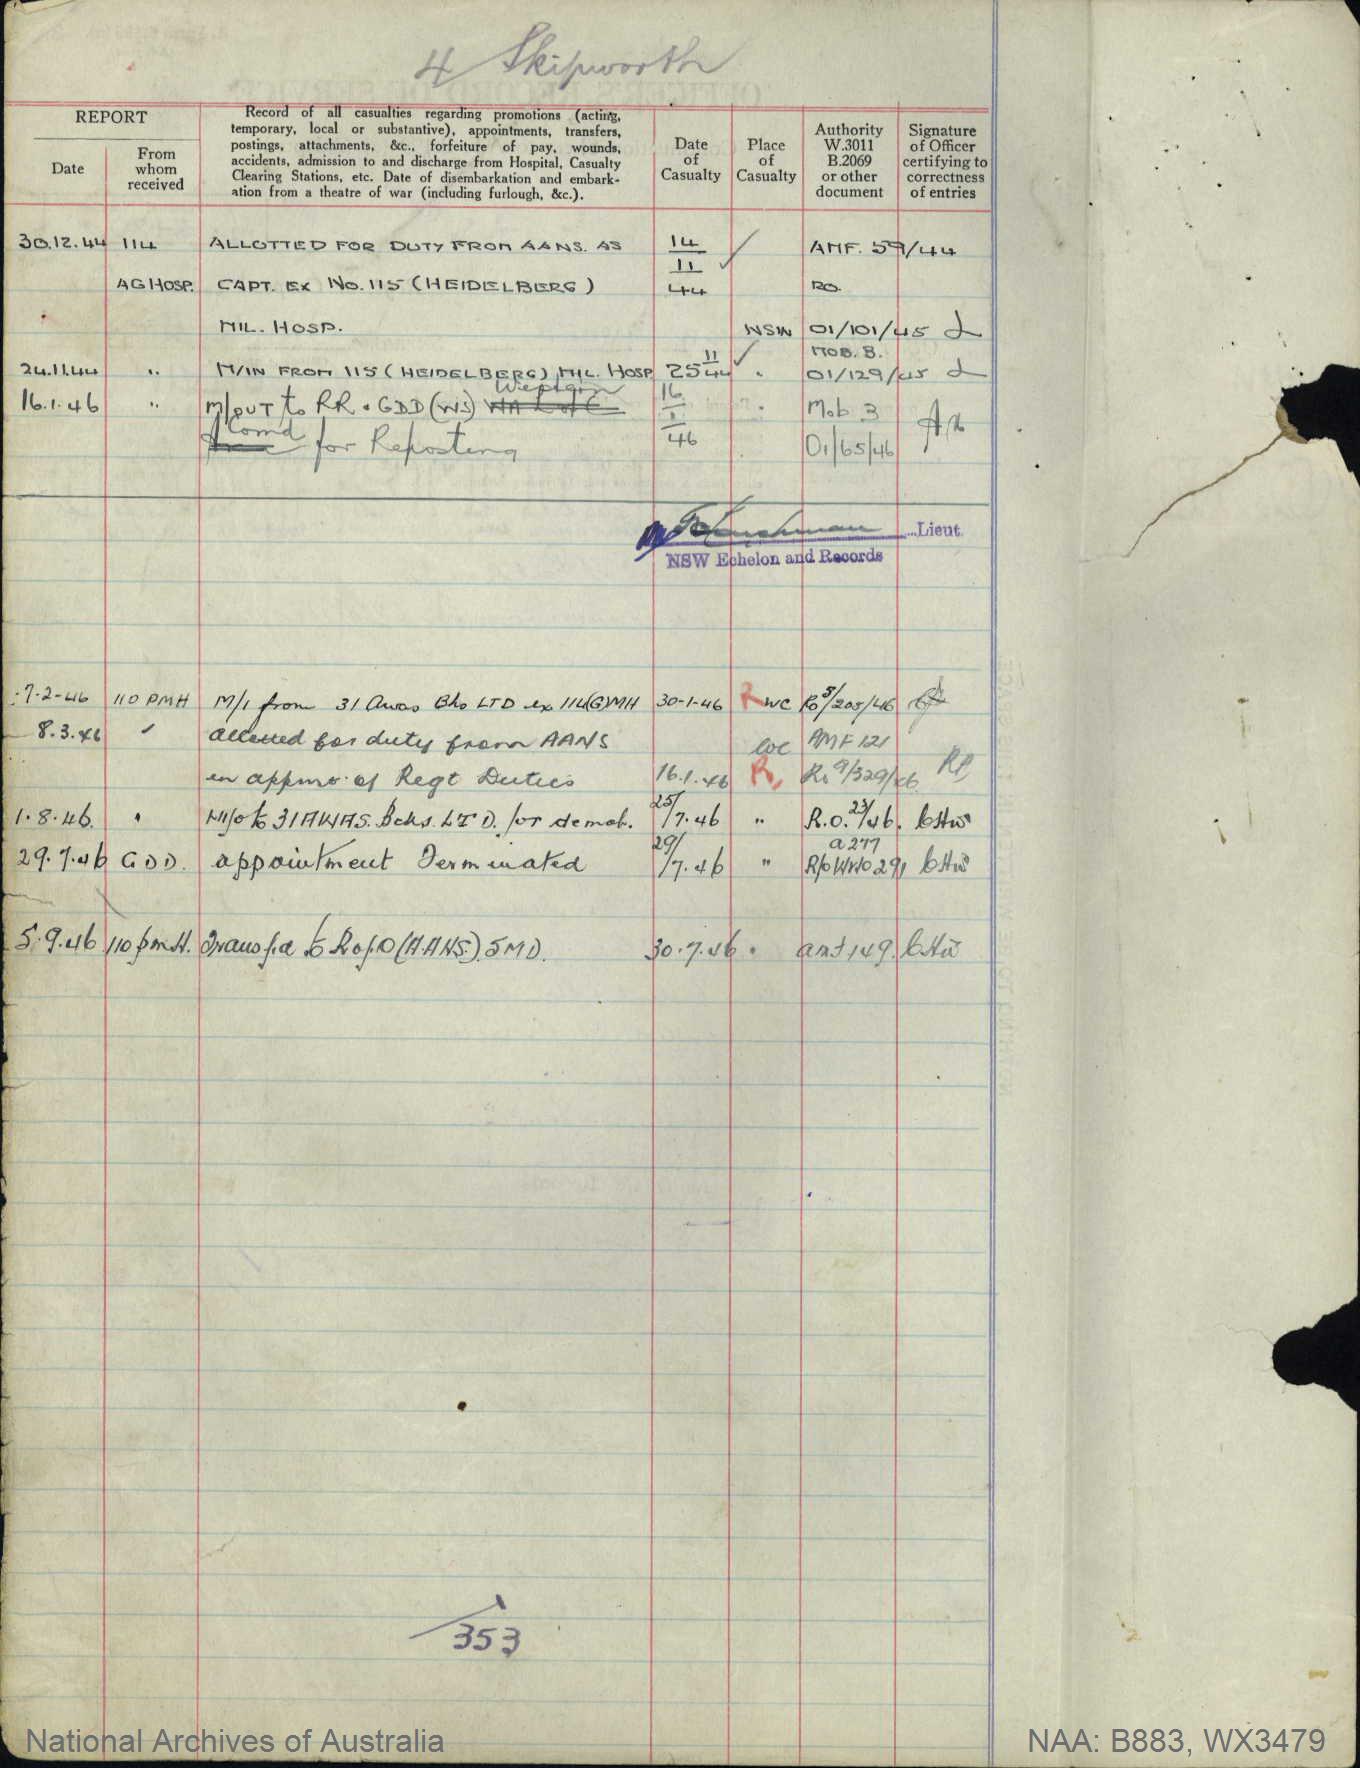 4 Skipworth
REPORT
Date
From whom received
Record of all casualties regarding promotions (acting,
temporary, local or substantive), appointments, transfers,
postings, attachments, &c., forfeiture of pay, wounds,
accidents, admission to and discharge from Hospital, Casualty
Clearing Stations, etc. Date of disembarkation and embark-
ation from a theatre of war (including furlough, &c.).
Date of Casualty
Place of Casualty
Authority W.3011 B.2069 or other document
Signature of Officer certifying to correctness of entries
30.12.44 114 ALLOTTED FOR DUTY FROM AANS. AS 14/11/44 AMF. 59/44
AG HOSP. CAPT. EX NO. 115 (HEIDELBERG) RO.
MIL. HOSP. NSW 01/101/45
MOB. 8.
24.11.44 " M/IN FROM 115 (HEIDELBERG) MIL. HOSP 25 11/44 " 01/129/45
Western
16.1.46 " M/OUT to RR & GDD (WS) WA L of C 16/1/46 " Mob 3
Comd
Area for Reposting 01/65/46
Lieut.
NSW Echelon and Records
7-2-46 110 PMH M/I from 31 Awas Bks LTD ex 114(G)MH 30-1-46 R WC Ro 5/205/46
8.3.46 " allotted for duty from AANS WC AMF 121
in appmt of Regt Duties 16.1.46 R Ro 9/329/46 RP
1.8.46. " M/o to 31 AWAS. Bcks. LTD. for demob. 25/7.46 " R.O. 23/46. CHW
a 277
29.7.46 GDD. appointment Terminated 29/7.46 " R/o WWO 291 CHW
5.9.46 110 p.m.H. Transfd to R of O (AANS). 5 M D. 30.7.46 " amf 149. CHW
353
National Archives of Australia
NAA: B883, WX3479